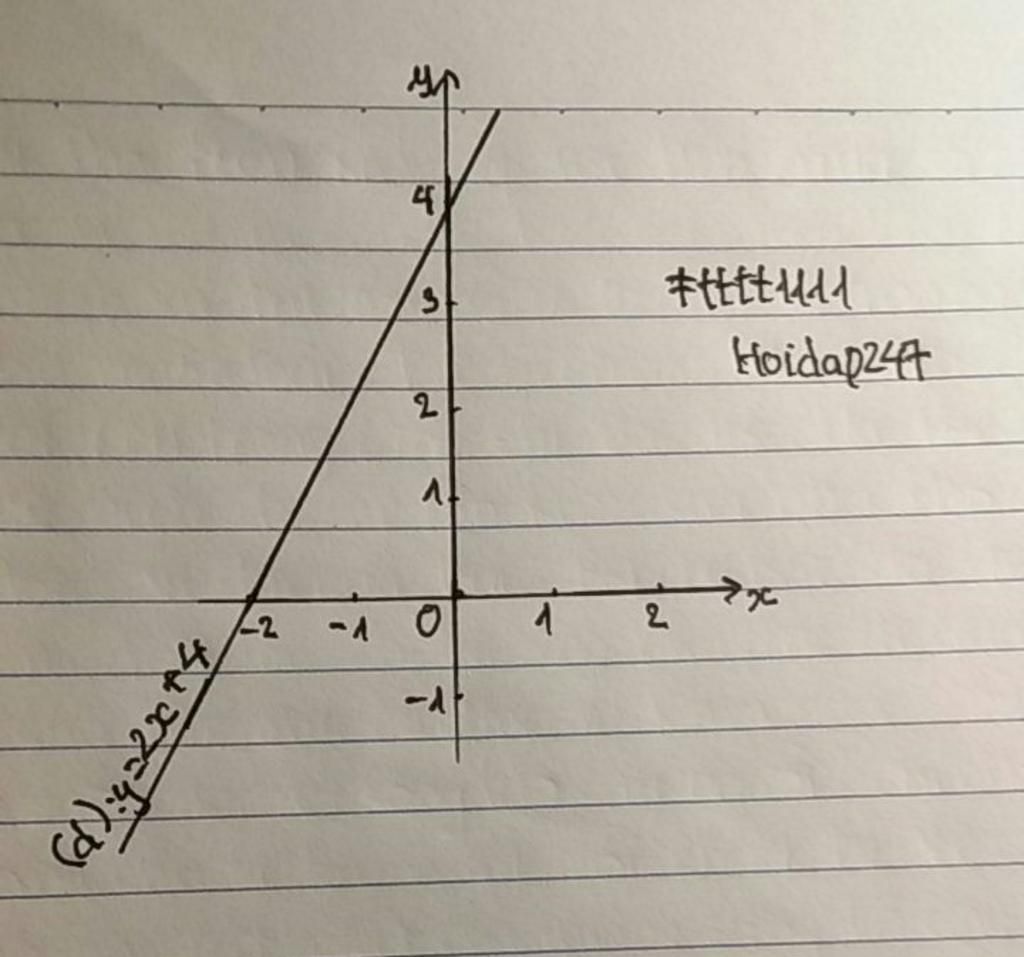 y
4
3
2
1
-2 -1 0 1 2 x
-1
(d): y=2x+4
Ftttt1111
Hoidap247